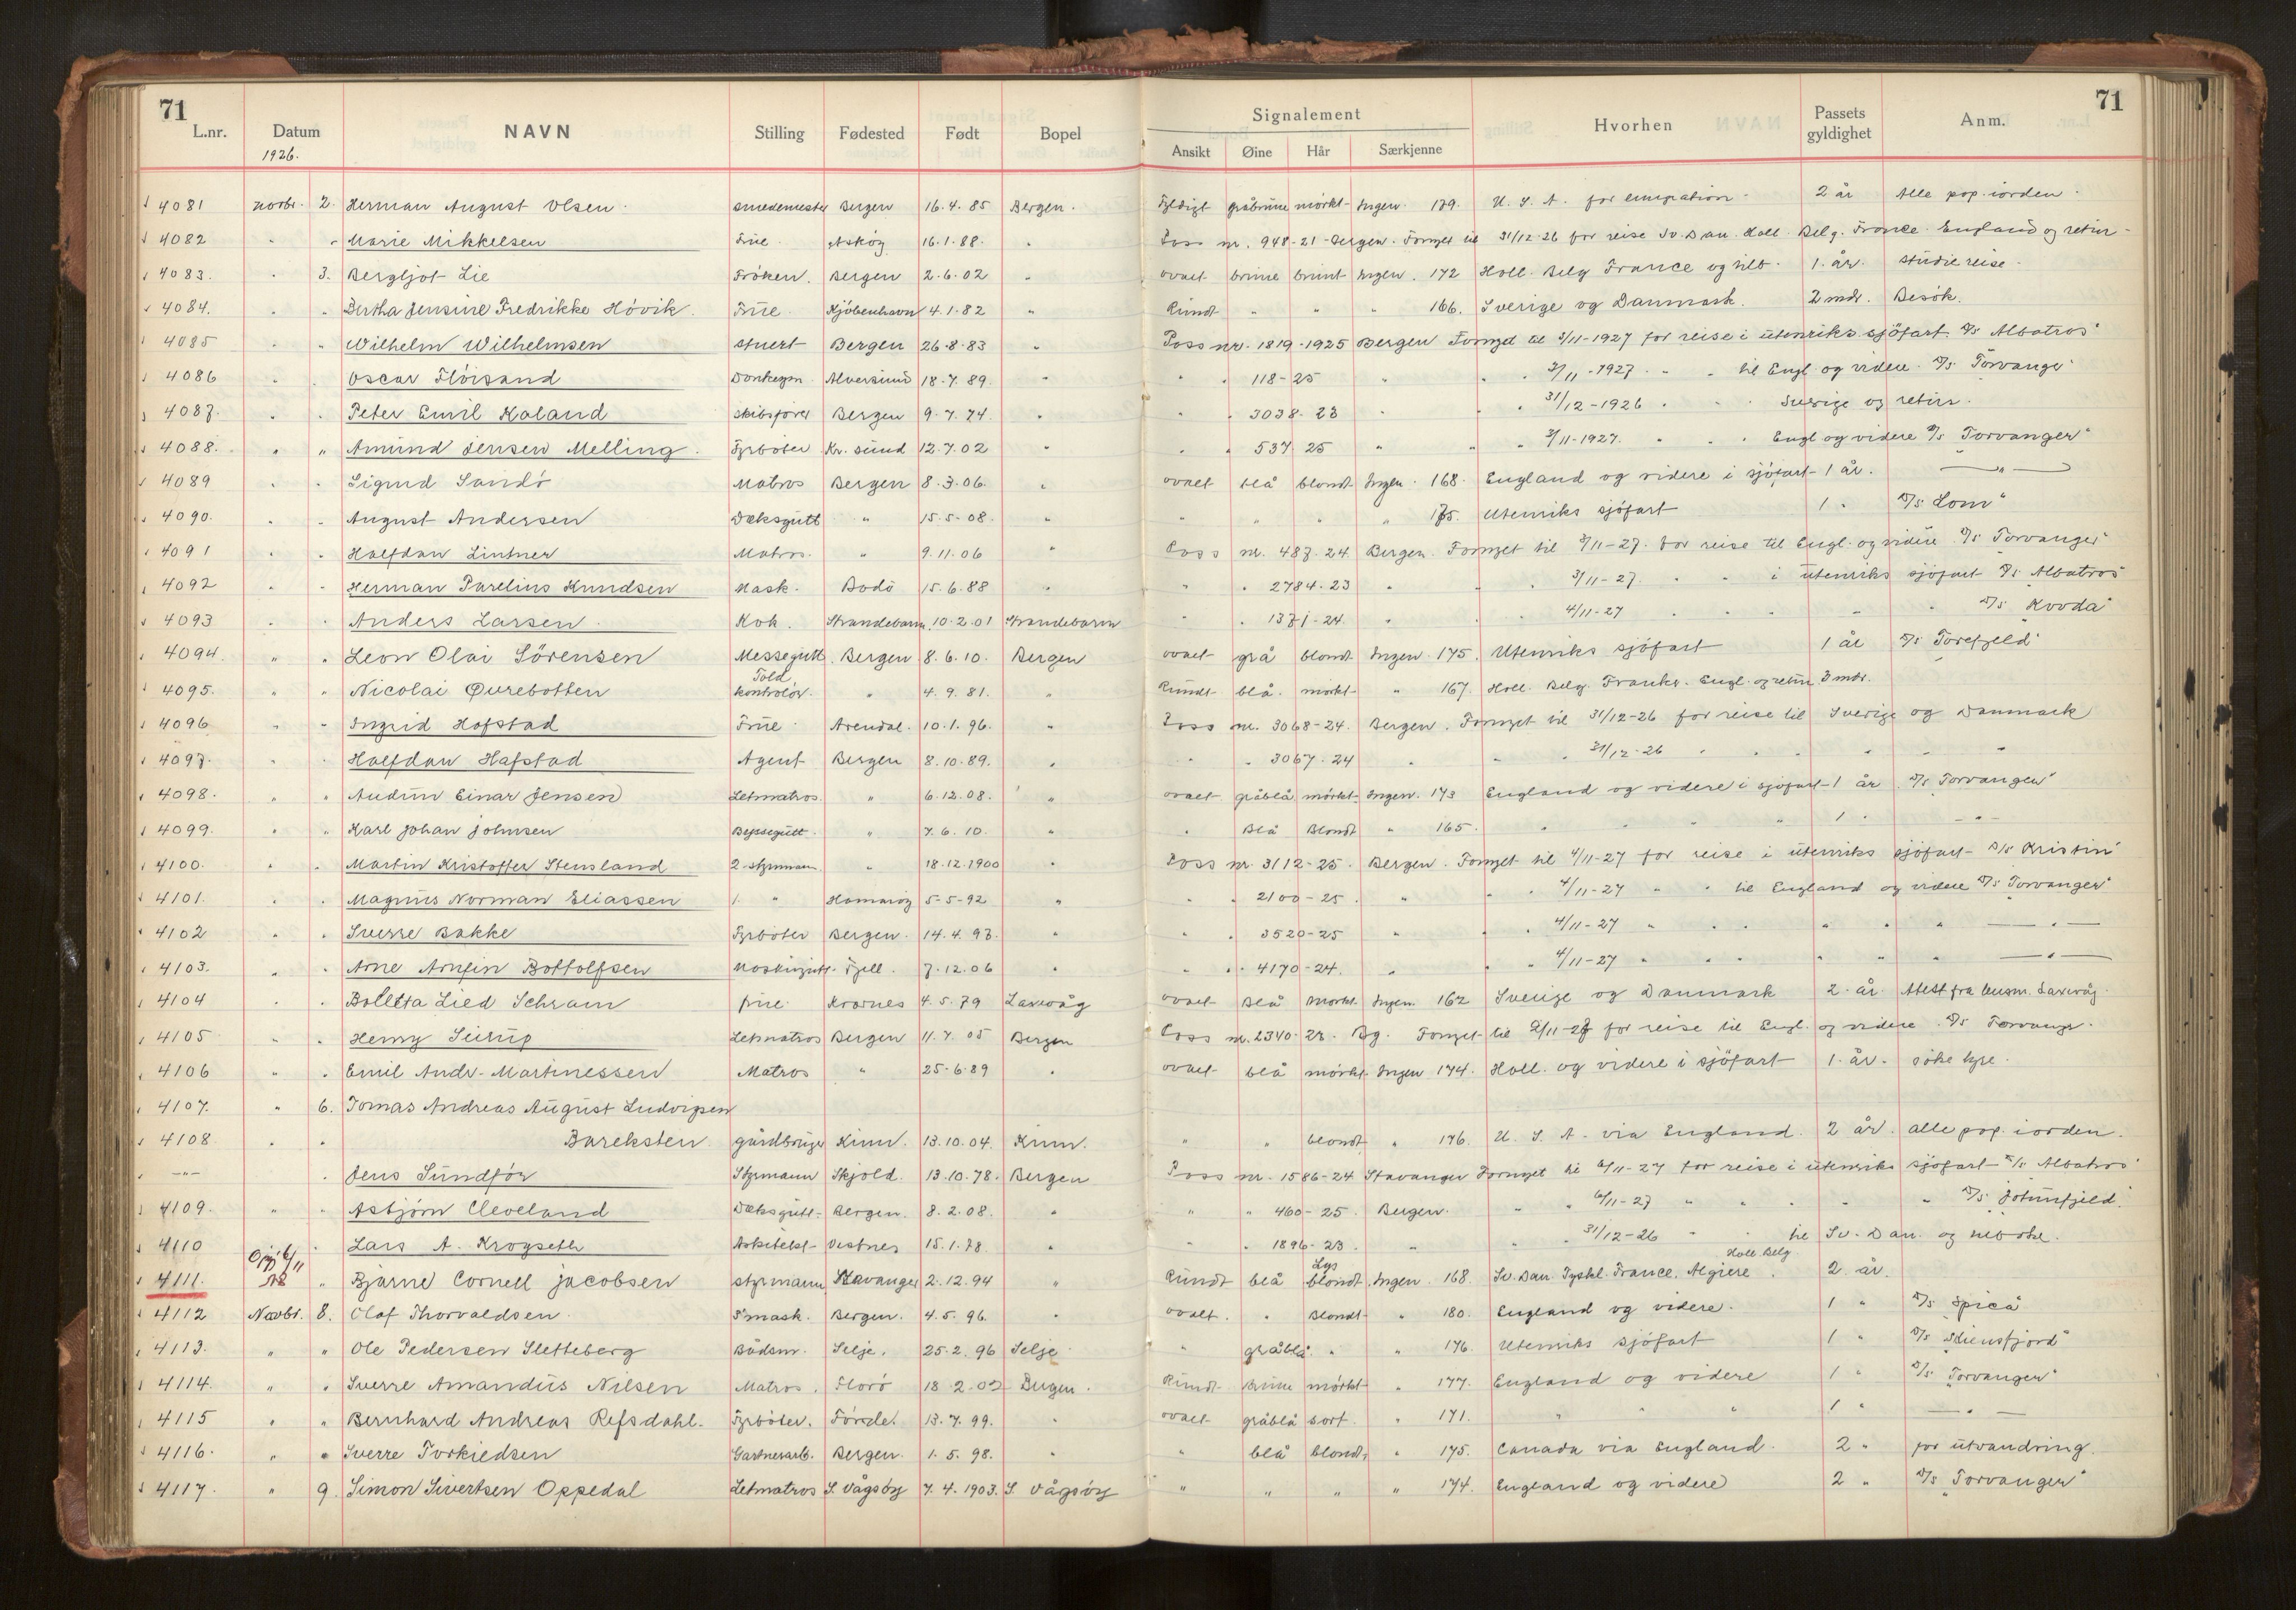 71
L.nr. Datum NAVN Stilling Fødested Født Bopel Signalement Hvorhen Passets gyldighet Anm. 71
1926. Ansikt Øine Hår Særkjenne
4081 novbr. 2. Herman August Olsen. smedemester Bergen 16.4.85 Bergen. Fyldigt gråbrune mørkt Ingen. 179. U. S. A. for emigration 2 år Alle pap. iorden.
4082 " " Marie Mikkelsen Frue Askøy 16.1.88. " Pass nr. 948-21-Bergen. Fornyet til 31/12-26 for reise Sv. Dan. Holl. Belg. France England og retur
4083. " 3. Bergljot Lie Frøken. Bergen 2.6.02 " ovalt brune brunt Ingen. 172 Holl. Belg France og tilb. 1. år. studiereise.
4084. " " Bertha Jensine Fredrikke Hövik. Frue Kjöbenhavn 4.1.82 " Rundt " " " 166. Sverige og Danmark. 2 mdr. Besök.
4085 " " Wilhelm Wilhelmsen stuert Bergen 26.8.83 " Pass nr. 1819-1925 Bergen Fornyet til 3/11-1927 for reise i utenriks sjöfart D/S Albatros"
4086 " " Oscar Flöisand Donkeym. Alversund 18.7.89. " " " 118-25 " " " 3/11-1927 " " til Engl og videre. D/S "Torvanger"
4087. " " Peter Emil Kaland skibsfører Bergen 9.7.74. " " " 3038-23 " " " 31/12-1926 " " Sverige og retur.
4088. " " Amund Jensen Melling. Fyrböter Kr. sund 12.7.02 " " " 537 25 " " " 3/11-1927. " " " Engl og videre D/S "Torvanger"
4089 " " Sigurd Sandö Matros Bergen 8.3.06. " ovalt blå blondt Ingen. 168. England og videre i sjöfart 1 år. — " —
4090. " " August Andersen Dæksgutt " 15.5.08. " " " " " 175. Utenriks sjöfart 1 " D/S "Lom"
4091 " " Halfdan Lintner Matros. " 9.11.06 " Pass nr. 487-24 Bergen. Fornyet til 3/11-27. for reise til Engl. og videre D/S "Torvanger"
4092 " " Herman Parelius Knudsen Mask. Bodö 15.6.88 " " " 2784-23 " " " 3/11-27. " " i utenriks sjöfart D/S Albatros"
4093 " " Anders Larsen Kok. Strandebarm. 10.2.01 Strandebarm " " 1371-24. " " 4/11-27 " " " " " D/S "Kovda"
4094. " " Leon Olai Sörensen Messegutt. Bergen 8.6.10. Bergen ovalt grå blondt Ingen 175. Utenriks sjöfart 1 år D/S "Torefjeld"
4095. " " Nicolai Qurebotten Told kontrolör. " 4.9.81. " Rundt blå. mørkt " 167. Holl. Belg. Frankr. Engl. og retur 3 mdr.
4096 " " Ingrid Hofstad Frue Arendal. 10.1.96. " Pass nr. 3068-24. Bergen. Fornyet til 31/12-26 for reise til Sverige og Danmark
4097. " " Halfdan Hafstad Agent Bergen 8.10.89. " " " 3067-24 " " " 31/12-26 " " " " "
4098. " " Audun Einar Jensen Letmatros " 6.12.08. " ovalt gråblå mørkt. Ingen. 173 England og videre i sjøfart 1 år. D/S "Torvanger"
4099. " " Karl Johan Johnsen Byssegutt. " 7.6.10. " " Blå Blondt " 165. " " " " 1 " — " —
4100. " " Martin Kristoffer Stensland 2. styrmann " 18.12.1900 " Pass nr. 3112-25. Bergen. Fornyet til 4/11-27 for reise i utenriks sjöfart D/S "Kristin"
4101. " " Magnus Norman Eliassen 1. " Hamarøy 5-5-92 " " " 2100-25. " " " 4/11-27 " " til England og videre D/S "Torvanger"
4102 " " Sverre Bakke Fyrböter Bergen. 14.4.93. " " " 3520-25 " " " 4/11-27 " " " " " " — " —
4103. " " Arne Arnfin Bottolfsen Maskingutt. Fjell. 7.12.06 " " " 4170-24. " " " 4/11-27 " " " " " " — " —
4104 " " Bolletta Lied Schram frue. Kvarnes 4.5.79 Laxevåg ovalt Blå Mørkt. Ingen 162 Sverige og Danmark 2. år. Attest fra lensm. Laxevåg.
4105 " " Henry Seirup Letmatros Bergen 11.7.05 Bergen Pass nr. 2340-23. Bg. Fornyet til 2/11-28 for reise til Engl. og videre. D/S Torvanger.
4106 " " Emil Andr. Martinessen Matros " 25.6.89 " ovalt blå mørkt. Ingen 174. Holl. og videre i sjöfart 1. år. söke hyre.
4107. " 6. Tomas Andreas August Ludvigsen
4108 " " Bareksten gårdbruger Kinn. 13.10.04. Kinn. " " blondt " 176. U. S. A. via England. 2 år. alle pap. iorden.
—"— " Jens Sundför Styrmann Skjold. 13.10.78. Bergen Pass nr. 1586-24 Stavanger Fornyet til 6/11-27 for reise i utenriks sjøfart D/S "Albatros"
4109. " " Asbjørn Cleveland Dæksgutt. Bergen. 8.2.08. " " " 460-25. Bergen. " " 6/11-27 " " " " " D/S "Jotunfjeld".
4110 " Lars A. Krogseth Arkitekt Vestnes 15.1.78. " " " 1896-23. " " " 31/12-26 " " til Sv. Dan. og tilbake.
6/11 Lys Holl Belg.
4111. " Bjarne Cornell Jacobsen styrmann Stavanger 2.12.94 " Rundt blå blondt. Ingen. 168. Sv. Dan. Tyskl. France. Algiere. 2. år.
4112 Novbr. 8. Olaf Thorvaldsen. mask. Bergen. 4.5.96. " ovalt. " Blondt " 180. England og videre. 1 " D/S "Spica"
4113. " " Ole Pedersen Sletteberg Bådsm. Selje. 25.2.96 Selje " gråblå. " " 176. Utenriks sjöfart 1 " D/S "Skiensfjord"
4114. " " Sverre Amandus Nilsen Matros. Florö 18.2.07 Bergen. Rundt Brune mørkt " 177. England og videre 1 " D/S "Torvanger"
4115 " " Bernhard Andreas Refsdahl. Fyrböter. Förde. 13.7.99. " ovalt gråblå sort. " 171. " " " 1 " — " —
4116. " " Sverre Torkildsen Gartnerarb. Bergen. 1.5.98. " " blå blondt " 175. Canada via England. 2 " for utvandring.
4117. " 9. Simon Sivertsen Oppedal Letmatros S. Vågsöy 7.4.1903. S. Vågsöy " " " " 174. England og videre 2 " D/S "Torvanger"